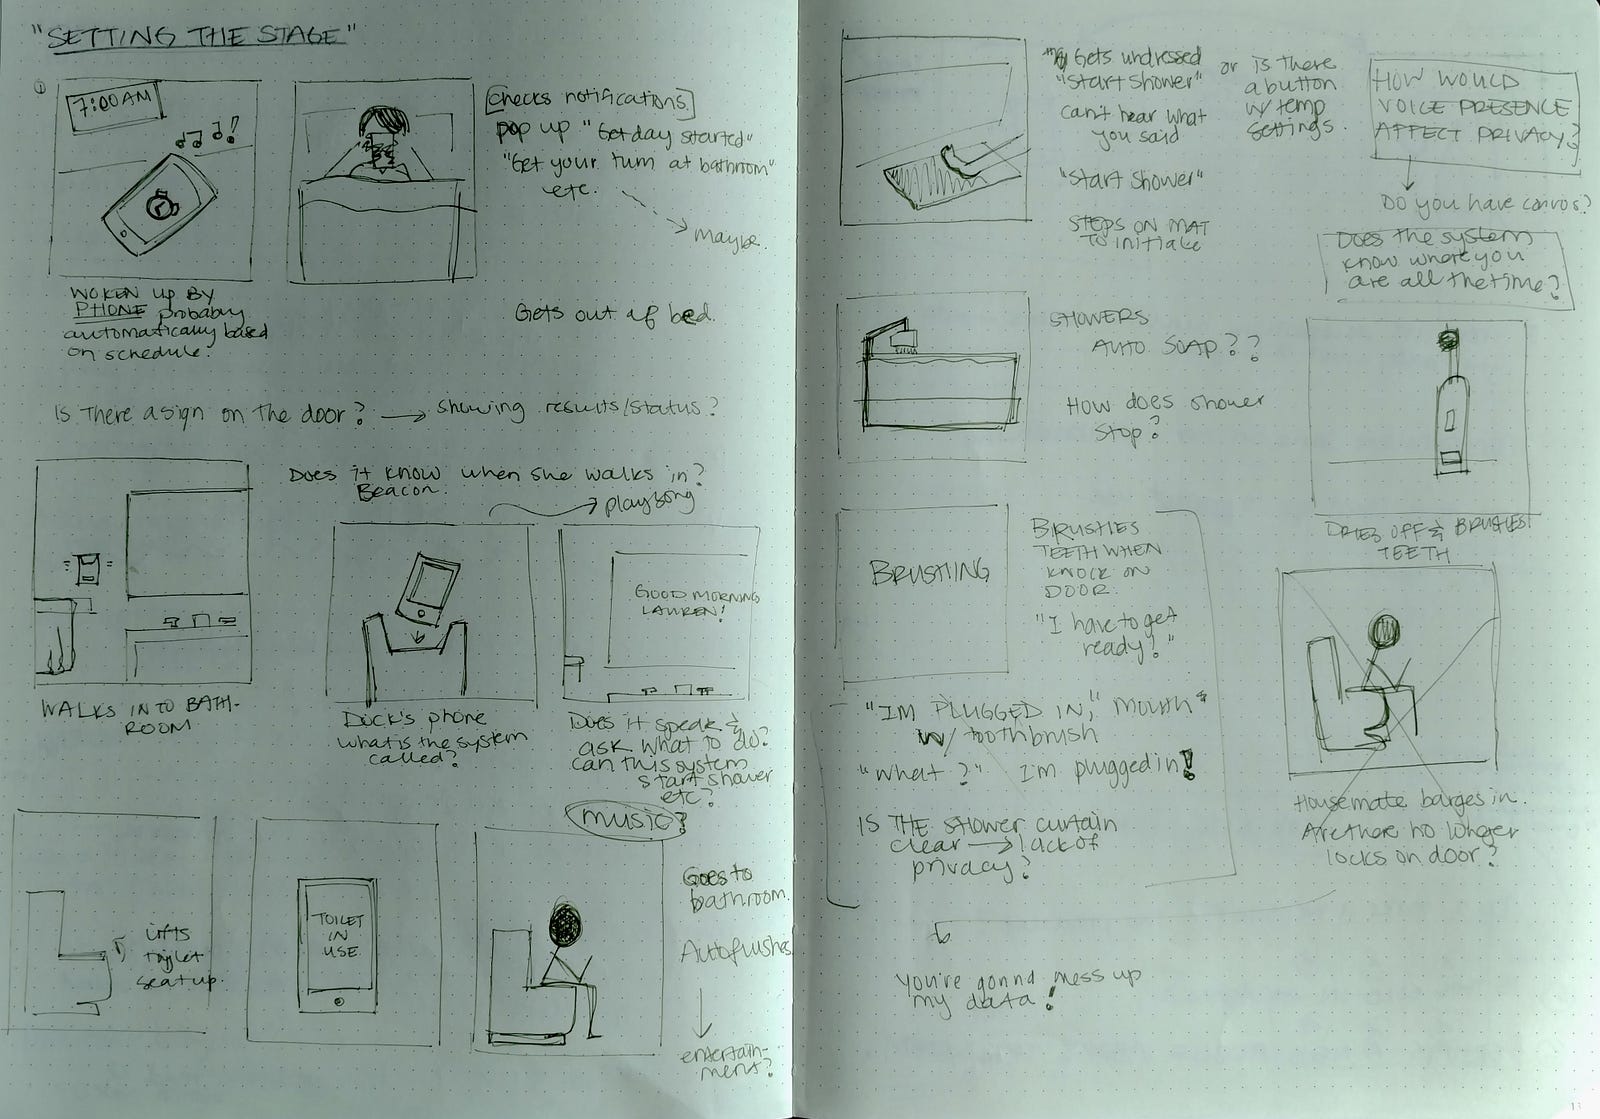 "SETTING THE STAGE"
①
7:00AM
checks notifications.
pop up "Get day started"
"Get your turn at bathroom"
etc.
maybe.
WOKEN UP BY
PHONE probably
automatically based
on schedule.
Gets out of bed.
Is there a sign on the door? → showing results/status?
Does it know when she walks in?
Beacon.
play song
WALKS INTO BATH-
ROOM
Dock's phone
what is the system
called?
GOOD MORNING
LAUREN!
Does it speak &
ask what to do?
can this system
start shower
etc?
music?
Lifts
toilet
seat up.
TOILET
IN
USE
Goes to
bathroom.
Autoflushes
entertain-
ment?
Gets undressed
"Start Shower"
can't hear what
you said
"Start Shower"
STEPS ON MAT
TO initiate
or is there
a button
w/ temp
settings.
HOW WOULD
VOICE PRESENCE
AFFECT PRIVACY?
Do you have convos?
Does the system
know where you
are all the time?
SHOWERS
AUTO SOAP??
How does shower
stop?
DRIES OFF & BRUSHES
TEETH
BRUSHING
BRUSHES
TEETH WHEN
KNOCK ON
DOOR.
"I have to get
ready!"
"I'M PLUGGED IN," MOUTH
w/ toothbrush
"what?" I'm plugged in!
IS THE SHOWER CURTAIN
clear → lack of
privacy?
Housemate barges in.
Are there no longer
locks on door?
You're gonna mess up
my data!